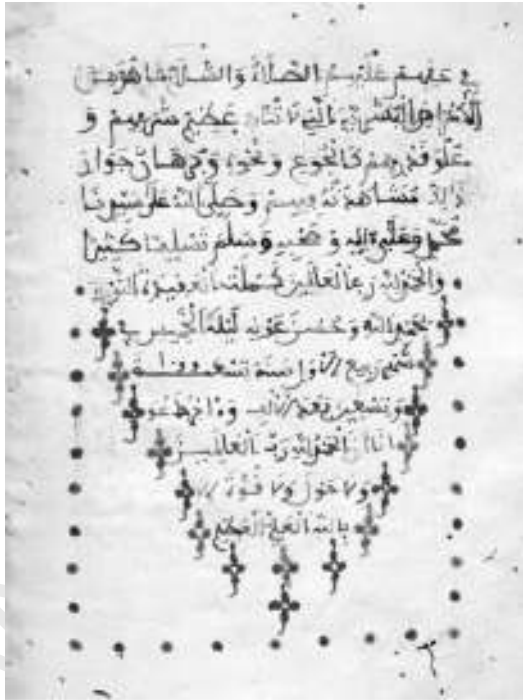 في حقهم عليهم الصلاة والسلام ما هو من
الاعراض البشرية التي لا تنافي عظيم شرفهم و
علو قدرهم كالجوع ونحوه وبرهان جواز
ذالك مشاهدته بهم وصلى الله على سيدنا
محمد وعلى ءاله وصحبه وسلم تسليما كثيرا
والحمد لله رب العالمين كملت العقيدة
بحمد الله وحسن عونه ليلة الخميس
شهر ربيع الاول سنة تسعة
وتسعين بعد الالف وءاخر دعو
انا ان الحمد لله رب العالمين
ولا حول ولا قوة الا
بالله العلي العظيم